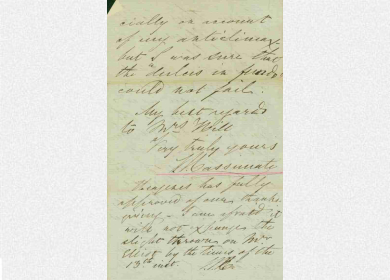 cially on account
of my anticlimax,
but I was sure that
the "dealers on
could not fail.
My best regards
to Mrs Will
Very truly yours
has fully
approved of our thanks-
giving. I am afraid it
will not expunge the
slight thrown on Mr
by the time of the
13th inst.